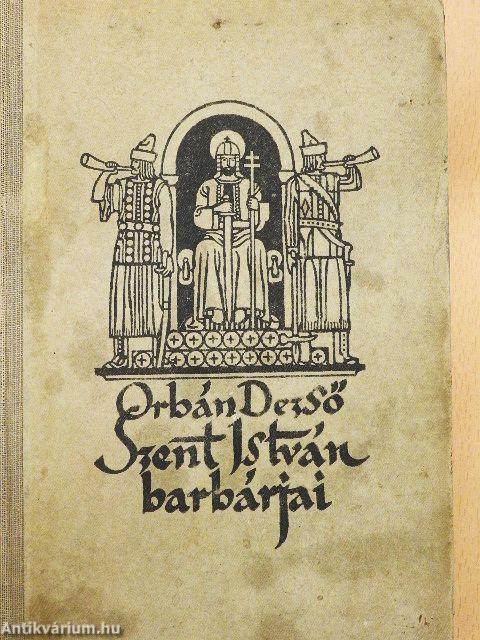 Orbán Dezső
Szent István
barbárjai
Antikvárium.hu